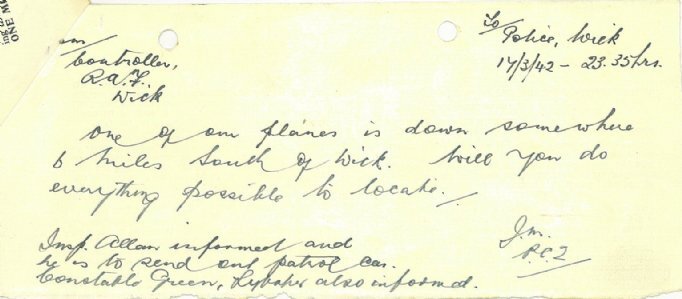 To/
Police, Wick
17/3/42 - 23.35hrs.
Controller,
R.A.F.
Wick
one of our planes is down somewhere
6 miles South of Wick. Will you do
everything possible to locate.
J.M.
P.C.2
Insp. Allan informed and
he is to send out patrol car.
Constable Green, Lybster also informed.